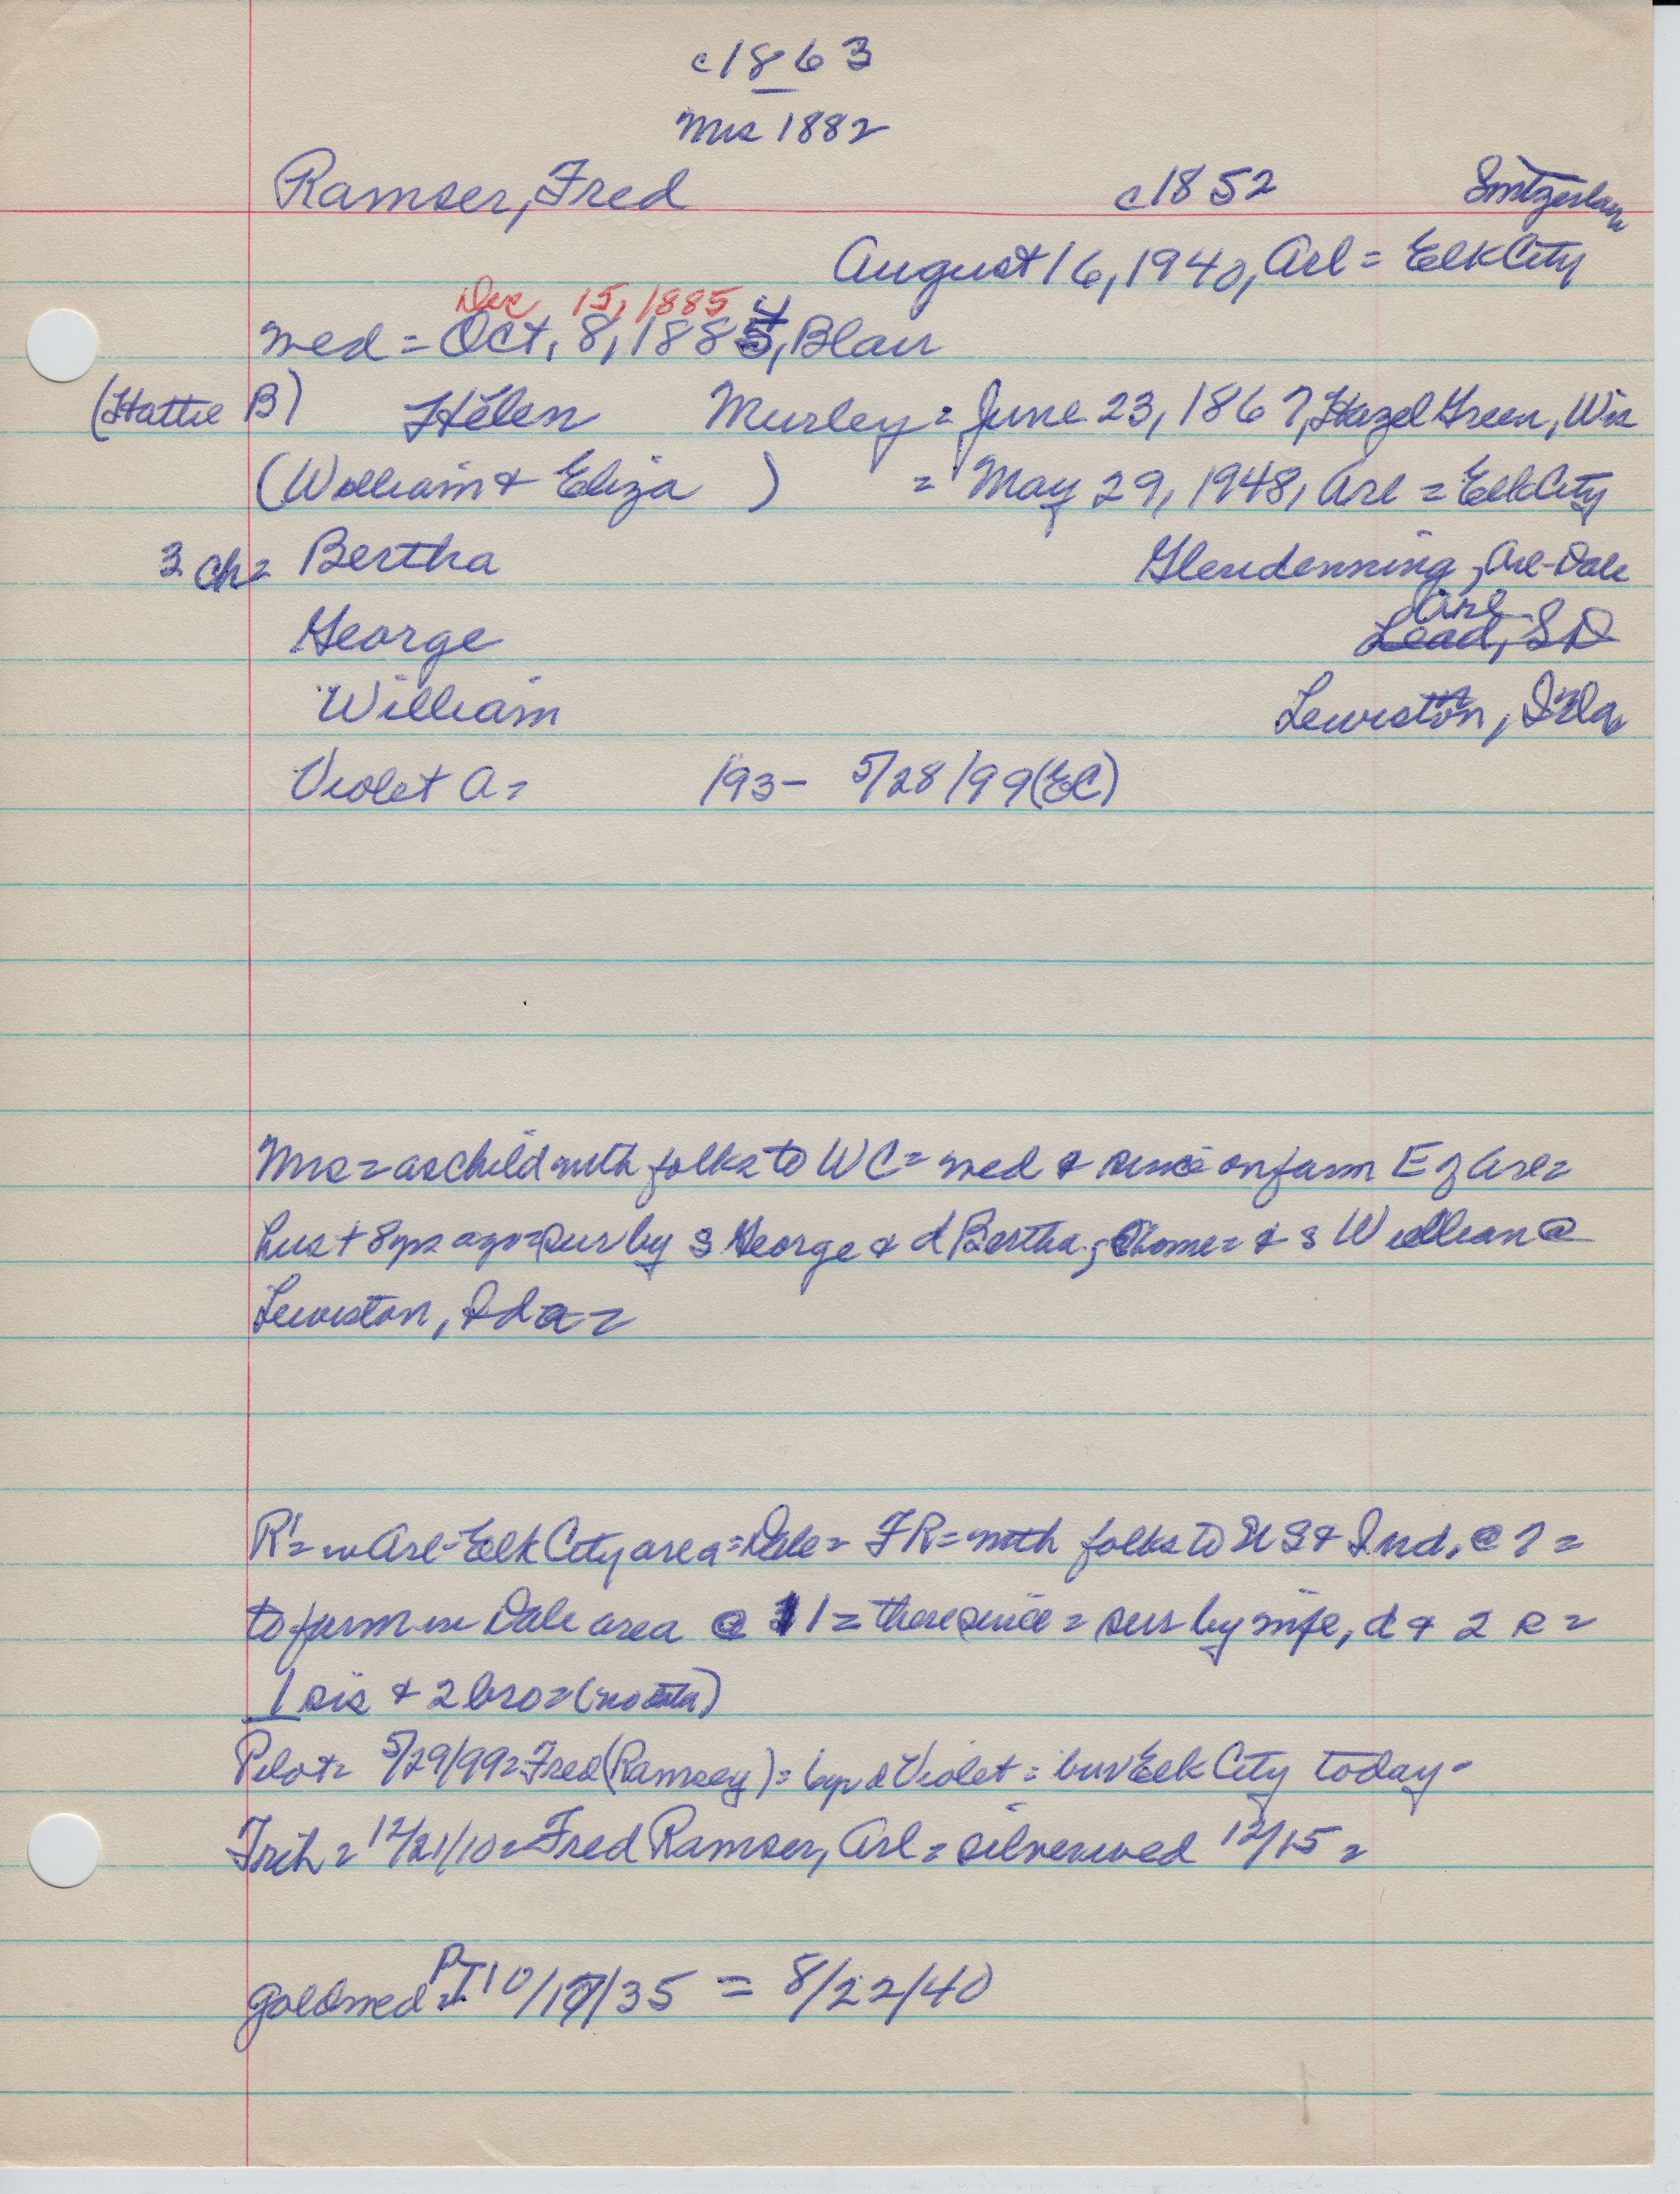 c1863
Mrs 1882
Ramser, Fred c1852 Switzerlan
August 16, 1940, Arl = Elk City
Dec 15, 1885
wed = Oct, 8, 1884, Blair
(Hattie B) Helen Murley = June 23, 1867, Hazel Green, Wis
(William & Eliza ) = May 29, 1948, Arl = Elk City
3 ch = Bertha Glendenning, Arl-Dale
Arl
George Lead, SD
William Lewiston, Ida
Violet A = /93 - 5/28/99 (EC)
Mrs = as child with folks to WC = wed & since on farm E of Arl =
hus + 8 yrs ago = sur by s George & d Bertha, @ home = & s William @
Lewiston, Ida =
R's = in Arl-Elk City area = Dale = FR = with folks to US & Ind. @ ? =
to farm in Dale area @ 11 = there since = sur by wife, d & 2 s =
1 sis & 2 bro = (no )
Pilot = 5/29/99 = Fred (Ramsey) = 6 yr d Violet = bur Elk City today -
Trib = 12/21/10 = Fred Ramser, Arl = silverwed 12/15 =
goldwed = PT 10/17/35 = 8/22/40